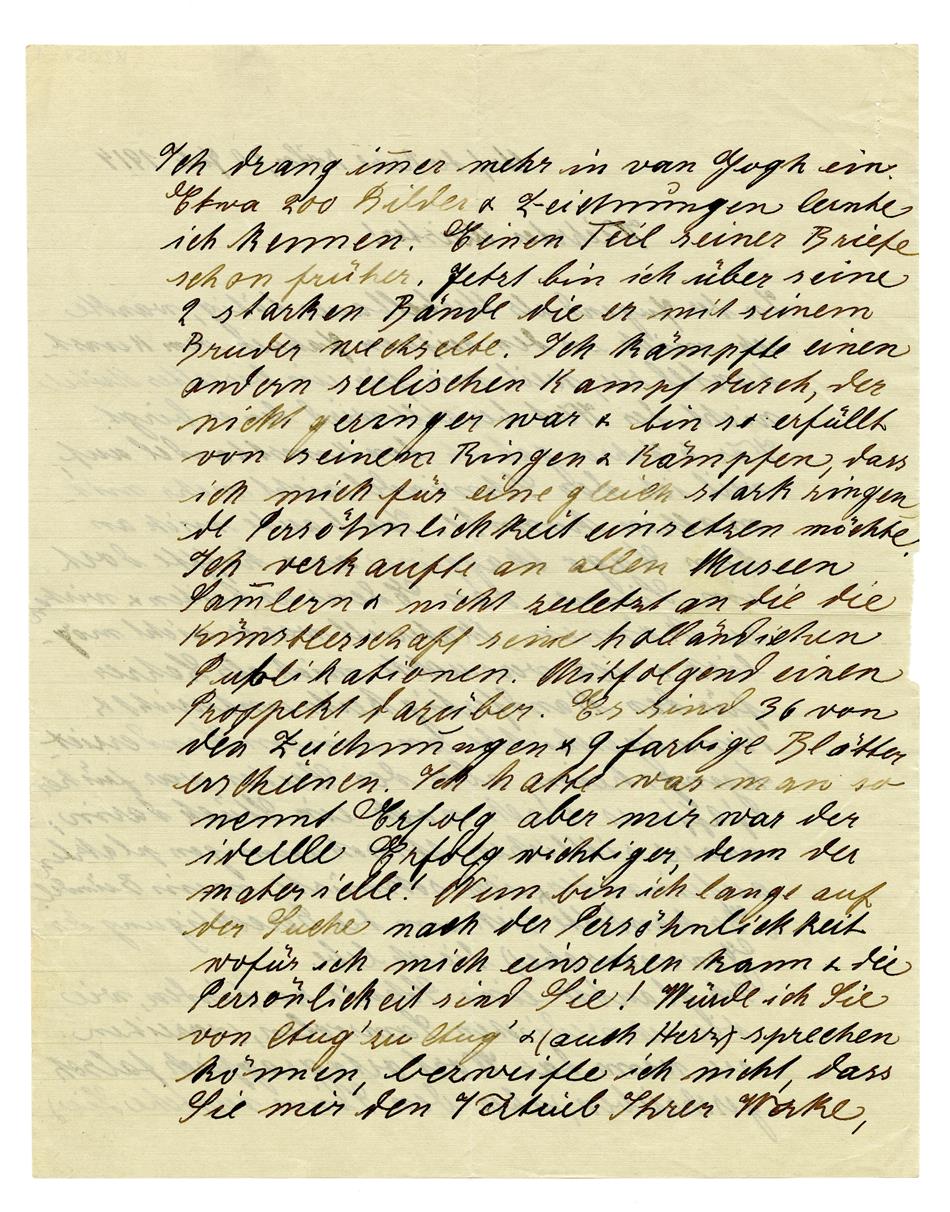 Ich drang im̅er mehr in van Gogh ein.
Etwa 200 Bilder & Zeichnungen lernte
ich kennen. Einen Teil seiner Briefe
schon früher. Jetzt bin ich über seine
2 starken Bände die er mit seinem
Bruder wechselte. Ich kämpfte einen
andern seelischen Kampf durch, der
nicht geringer war & bin so erfüllt
von seinem Ringen & Kämpfen, dass
ich mich für eine gleich stark ringen
de Persöhnlichkeit einsetzen möchte.
Ich verkaufte an allen Museen
Sam̅lern & nicht zuletzt an die die
Künstlerschaft seine holländichen
Publikationen. Mitfolgend einen
Proppekt darüber. Es sind 36 von
den Zeichnungen & 9 farbige Blätter
erschienen. Ich hatte was man so
nennt Erfolg aber mir war der
idellle Erfolg wichtiger, denn der
materielle! Nun bin ich lange auf
der Suche nach der Persöhnlickkeit
wofür ich mich einsetzen kann & die
Persönlickeit sind Sie! Würde ich Sie
von Aug' zu Aug' & (auch Herz) sprechen
können, bezweifle ich nicht, dass
Sie mir den Vertrieb Ihrer Werke,